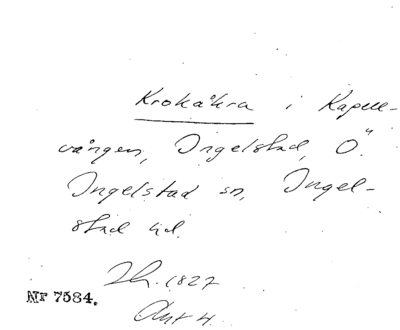 Krokåkra i Kapell-
vången, Ingelstad, Ö.
Ingelstad sn, Ingel-
stad hd.
1827
NF 7584.